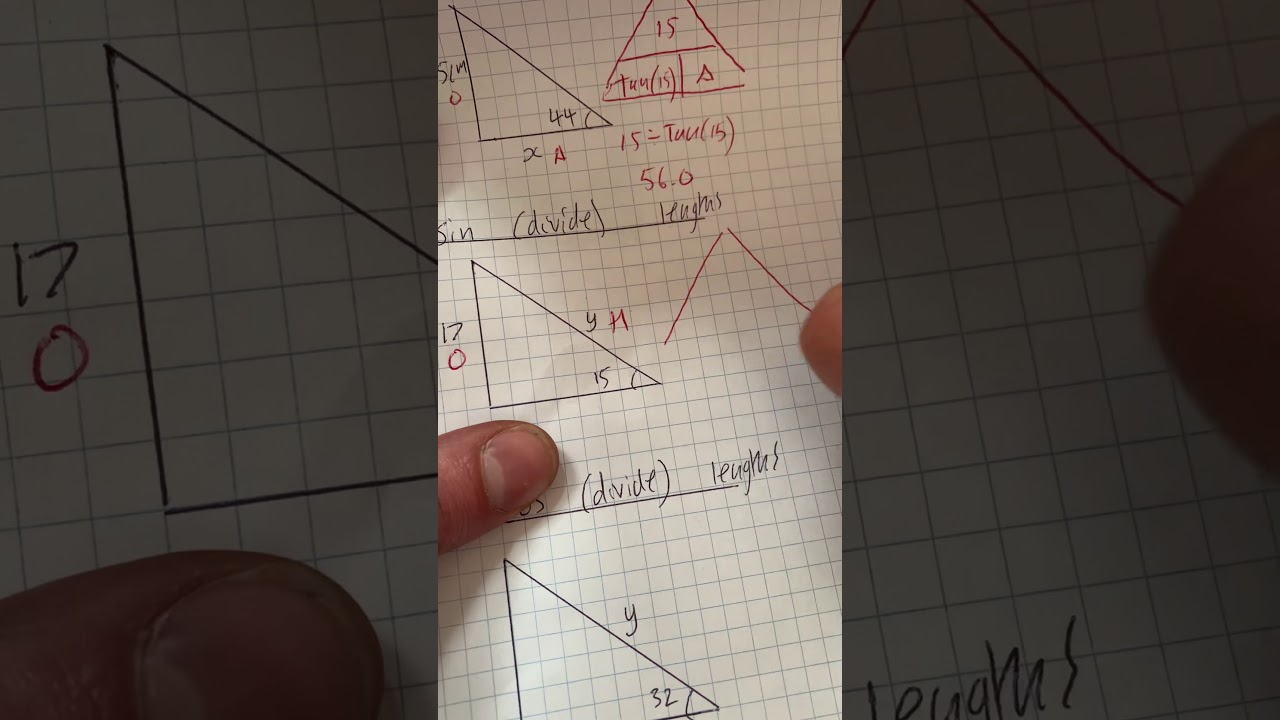 15
5cm
Tan(15) A
O
44
15÷Tan(15)
x A
56.0
Sin (divide) lengths
17
O
y H
15
(divide) lengths
y
32
17
O
lengths